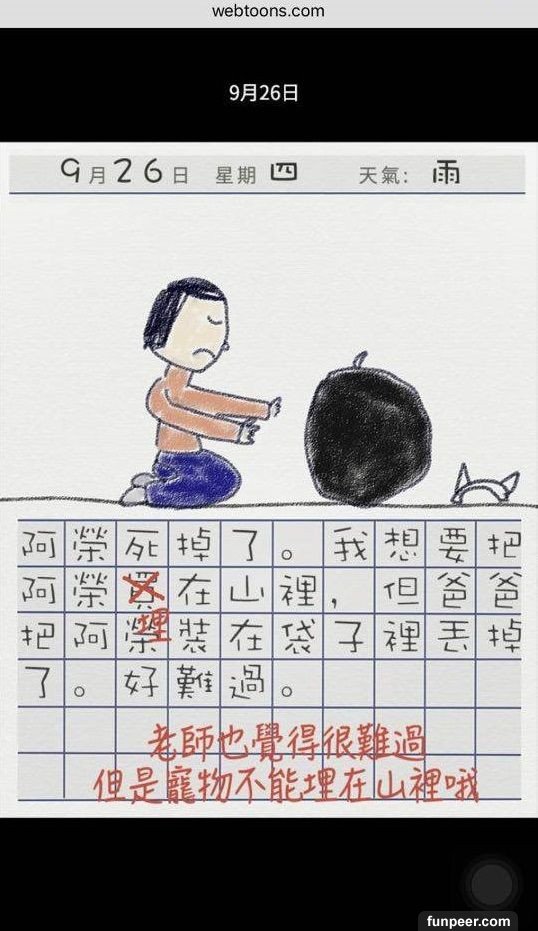 webtoons.com
9月26日
9月26日 星期四 天氣: 雨
阿榮死掉了。我想要把
阿榮買在山裡,但爸爸
埋
把阿榮裝在袋子裡丟掉
了。好難過。
老師也覺得很難過
但是寵物不能埋在山裡哦
funpeer.com